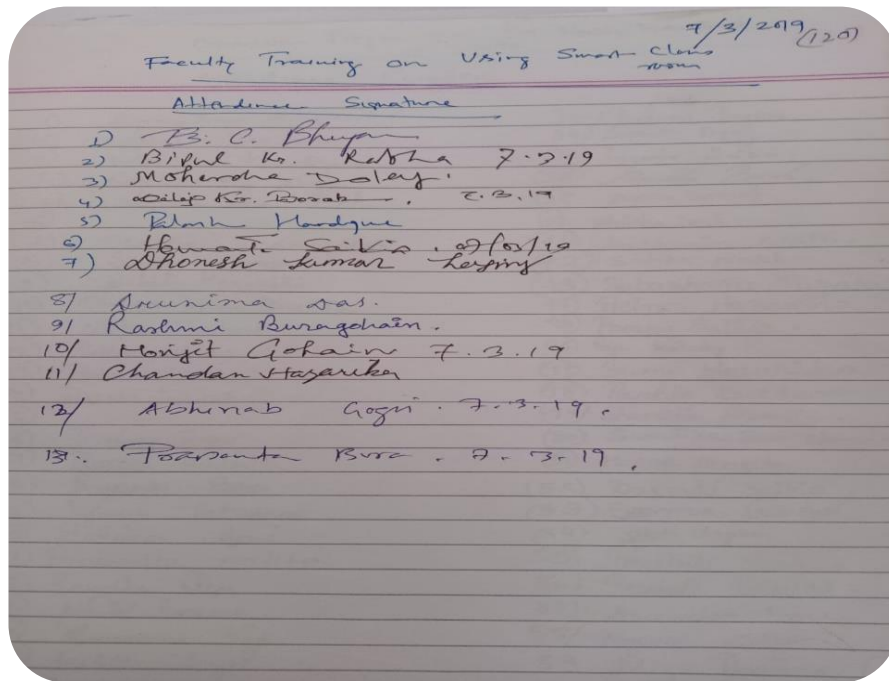 7/3/2019 (120)
Faculty Training on Using Smart Class
room
Attendence Signature
1) B. C. Bhuyan
2) Bipul Kr. Rabha 7.3.19
3) Mohendra Doley.
4) Dilip Kr. Borah. 7.3.19
5) Palash
6) Hemanta Saikia. 07/03/19
7) Dhonesh Kumar
8/ Arunima Das.
9/ Rashmi Buragohain.
10/ Monjit Gohain 7.3.19
11/ Chandan Hazarika
12/ Abhinab Gogoi. 7.3.19.
13. Prasanta Bura. 7.3.19.